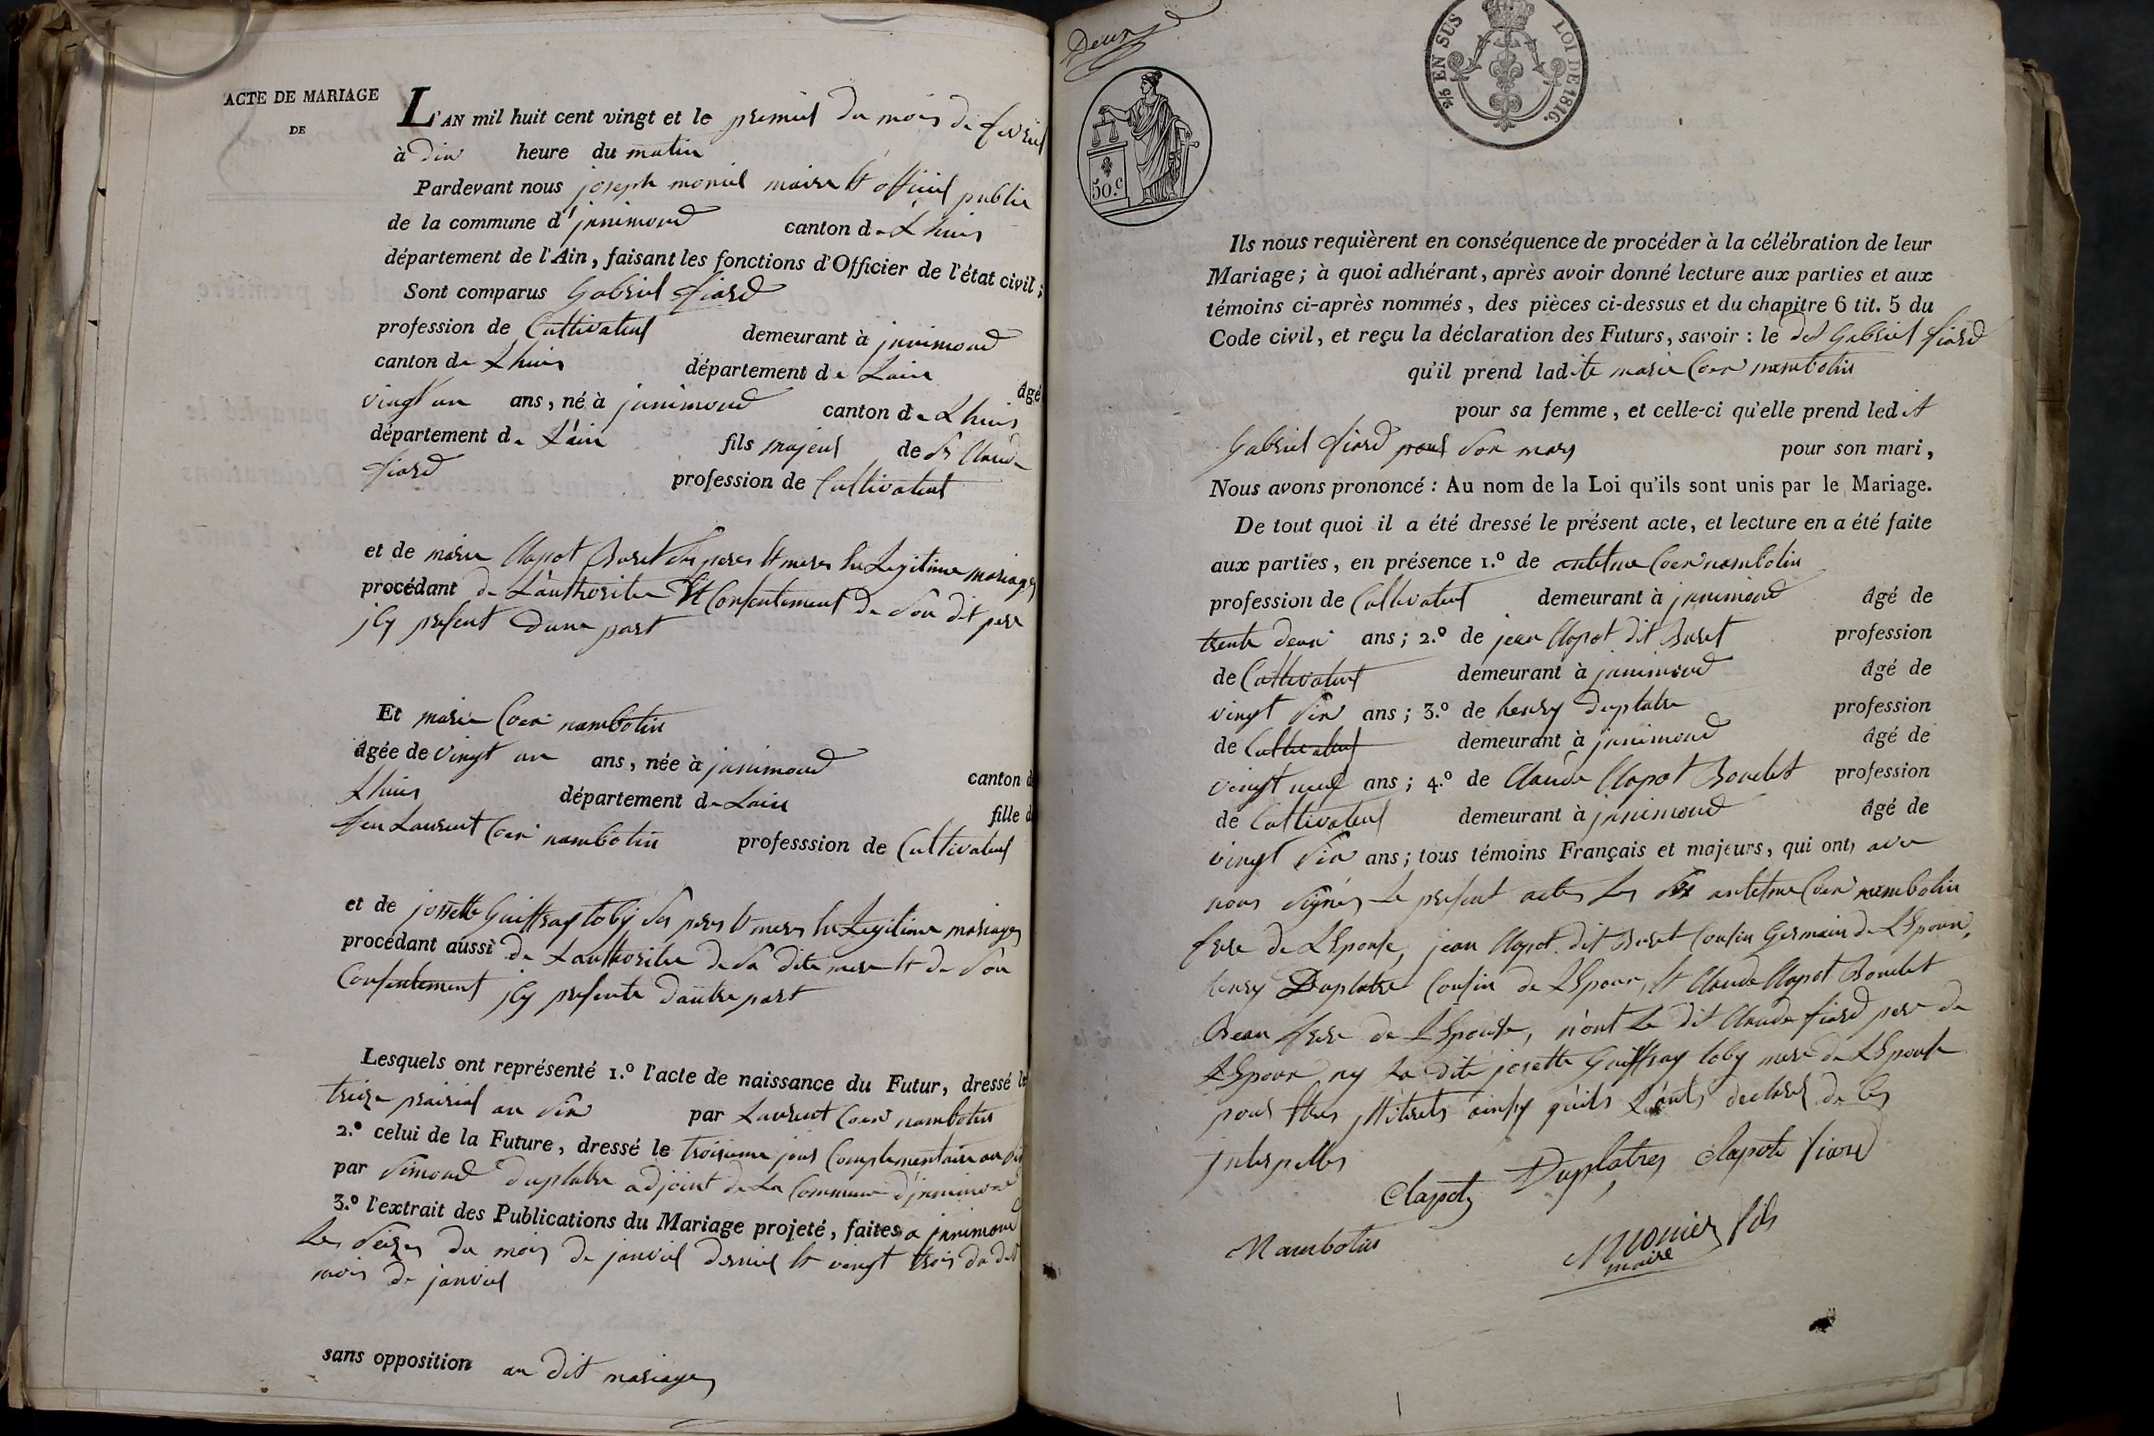 ACTE DE MARIAGE
DE
L'AN mil huit cent vingt et le premier du mois de fevrier
à dix heure du matin
Pardevant nous joseph monier maire et officier public
de la commune d'jnnimond canton de Lhuis
département de l'Ain, faisant les fonctions d'Officier de l'état civil ;
Sont comparus Gabriel fiard
profession de Cultivateur demeurant à jnnimond
canton de Lhuis département de Lain âgé
vingt un ans, né à jnnimond canton de Lhuis
département de L'ain fils majeur de Sr Claude
fiard profession de Cultivateur
et de marie Clapot Buret ses peres et meres en Legitime mariage
procédant de L'authorite et Consentement de son dit pere
jcy present d'une part
Et marie Coer nambotin
âgée de vingt un ans, née à jnnimond canton d
Lhuis département de Lain fille d
feu Laurent Coer nambotin professsion de Cultivateur
et de josette Guiffray toby ses peres et meres en Legitime mariage
procédant aussi de Lauthorite de sa dite mere et de son
Consentement jcy presente d'autre part
Lesquels ont représenté 1.º l'acte de naissance du Futur, dressé le
treize prairial an six par Laurent Coer nambotin
2.º celui de la Future, dressé le troisieme jour Complementaire an six
par Simond duplatre adjoint de La Commune d'jnnimond
3.º l'extrait des Publications du Mariage projeté, faites a jnnimond
Les seize du mois de janvier dernier et vingt trois du dit
mois de janvier
sans opposition au dit mariage
Deux
2/5 EN SUS LOI DE 1816.
50.c
Ils nous requièrent en conséquence de procéder à la célébration de leur
Mariage ; à quoi adhérant, après avoir donné lecture aux parties et aux
témoins ci-après nommés, des pièces ci-dessus et du chapitre 6 tit. 5 du
Code civil, et reçu la déclaration des Futurs, savoir : le dit Gabriel fiard
qu'il prend ladite marie Coer nambotin
pour sa femme, et celle-ci qu'elle prend ledit
Gabriel fiard pour son mary pour son mari,
Nous avons prononcé : Au nom de la Loi qu'ils sont unis par le Mariage.
De tout quoi il a été dressé le présent acte, et lecture en a été faite
aux parties, en présence 1.º de antelme Coer nambotin
profession de Cultivateur demeurant à jnnimond âgé de
trente deux ans ; 2.º de jean Clapot dit Buret profession
de Cultivateur demeurant à jnnimond âgé de
vingt six ans ; 3.º de henry duplatre profession
de Cultivateur demeurant à jnnimond âgé de
vingt neuf ans ; 4.º de Claude Clapot Boudet profession
de Cultivateur demeurant à jnnimond âgé de
vingt six ans ; tous témoins Français et majeurs, qui ont, avec
nous signés Le present acte, Les antelme Coer nambotin
frere de L'Epouse, jean Clapot dit Buret Cousin Germain de L'Epoux,
henry Duplatre Cousin de L'Epoux, et Claude Clapot Boudet
Beau frere de L'Epouse, n'ont Le dit Claude fiard pere de
L'Epoux ny La dite josette Guiffray toby mere de L'Epouse
pour etre jllitérés ainsy qu'ils L'ont declaré de Ce
jnterpellés
Clapot Duplatres Clapot fiard
Nambotin Monier fils
maire